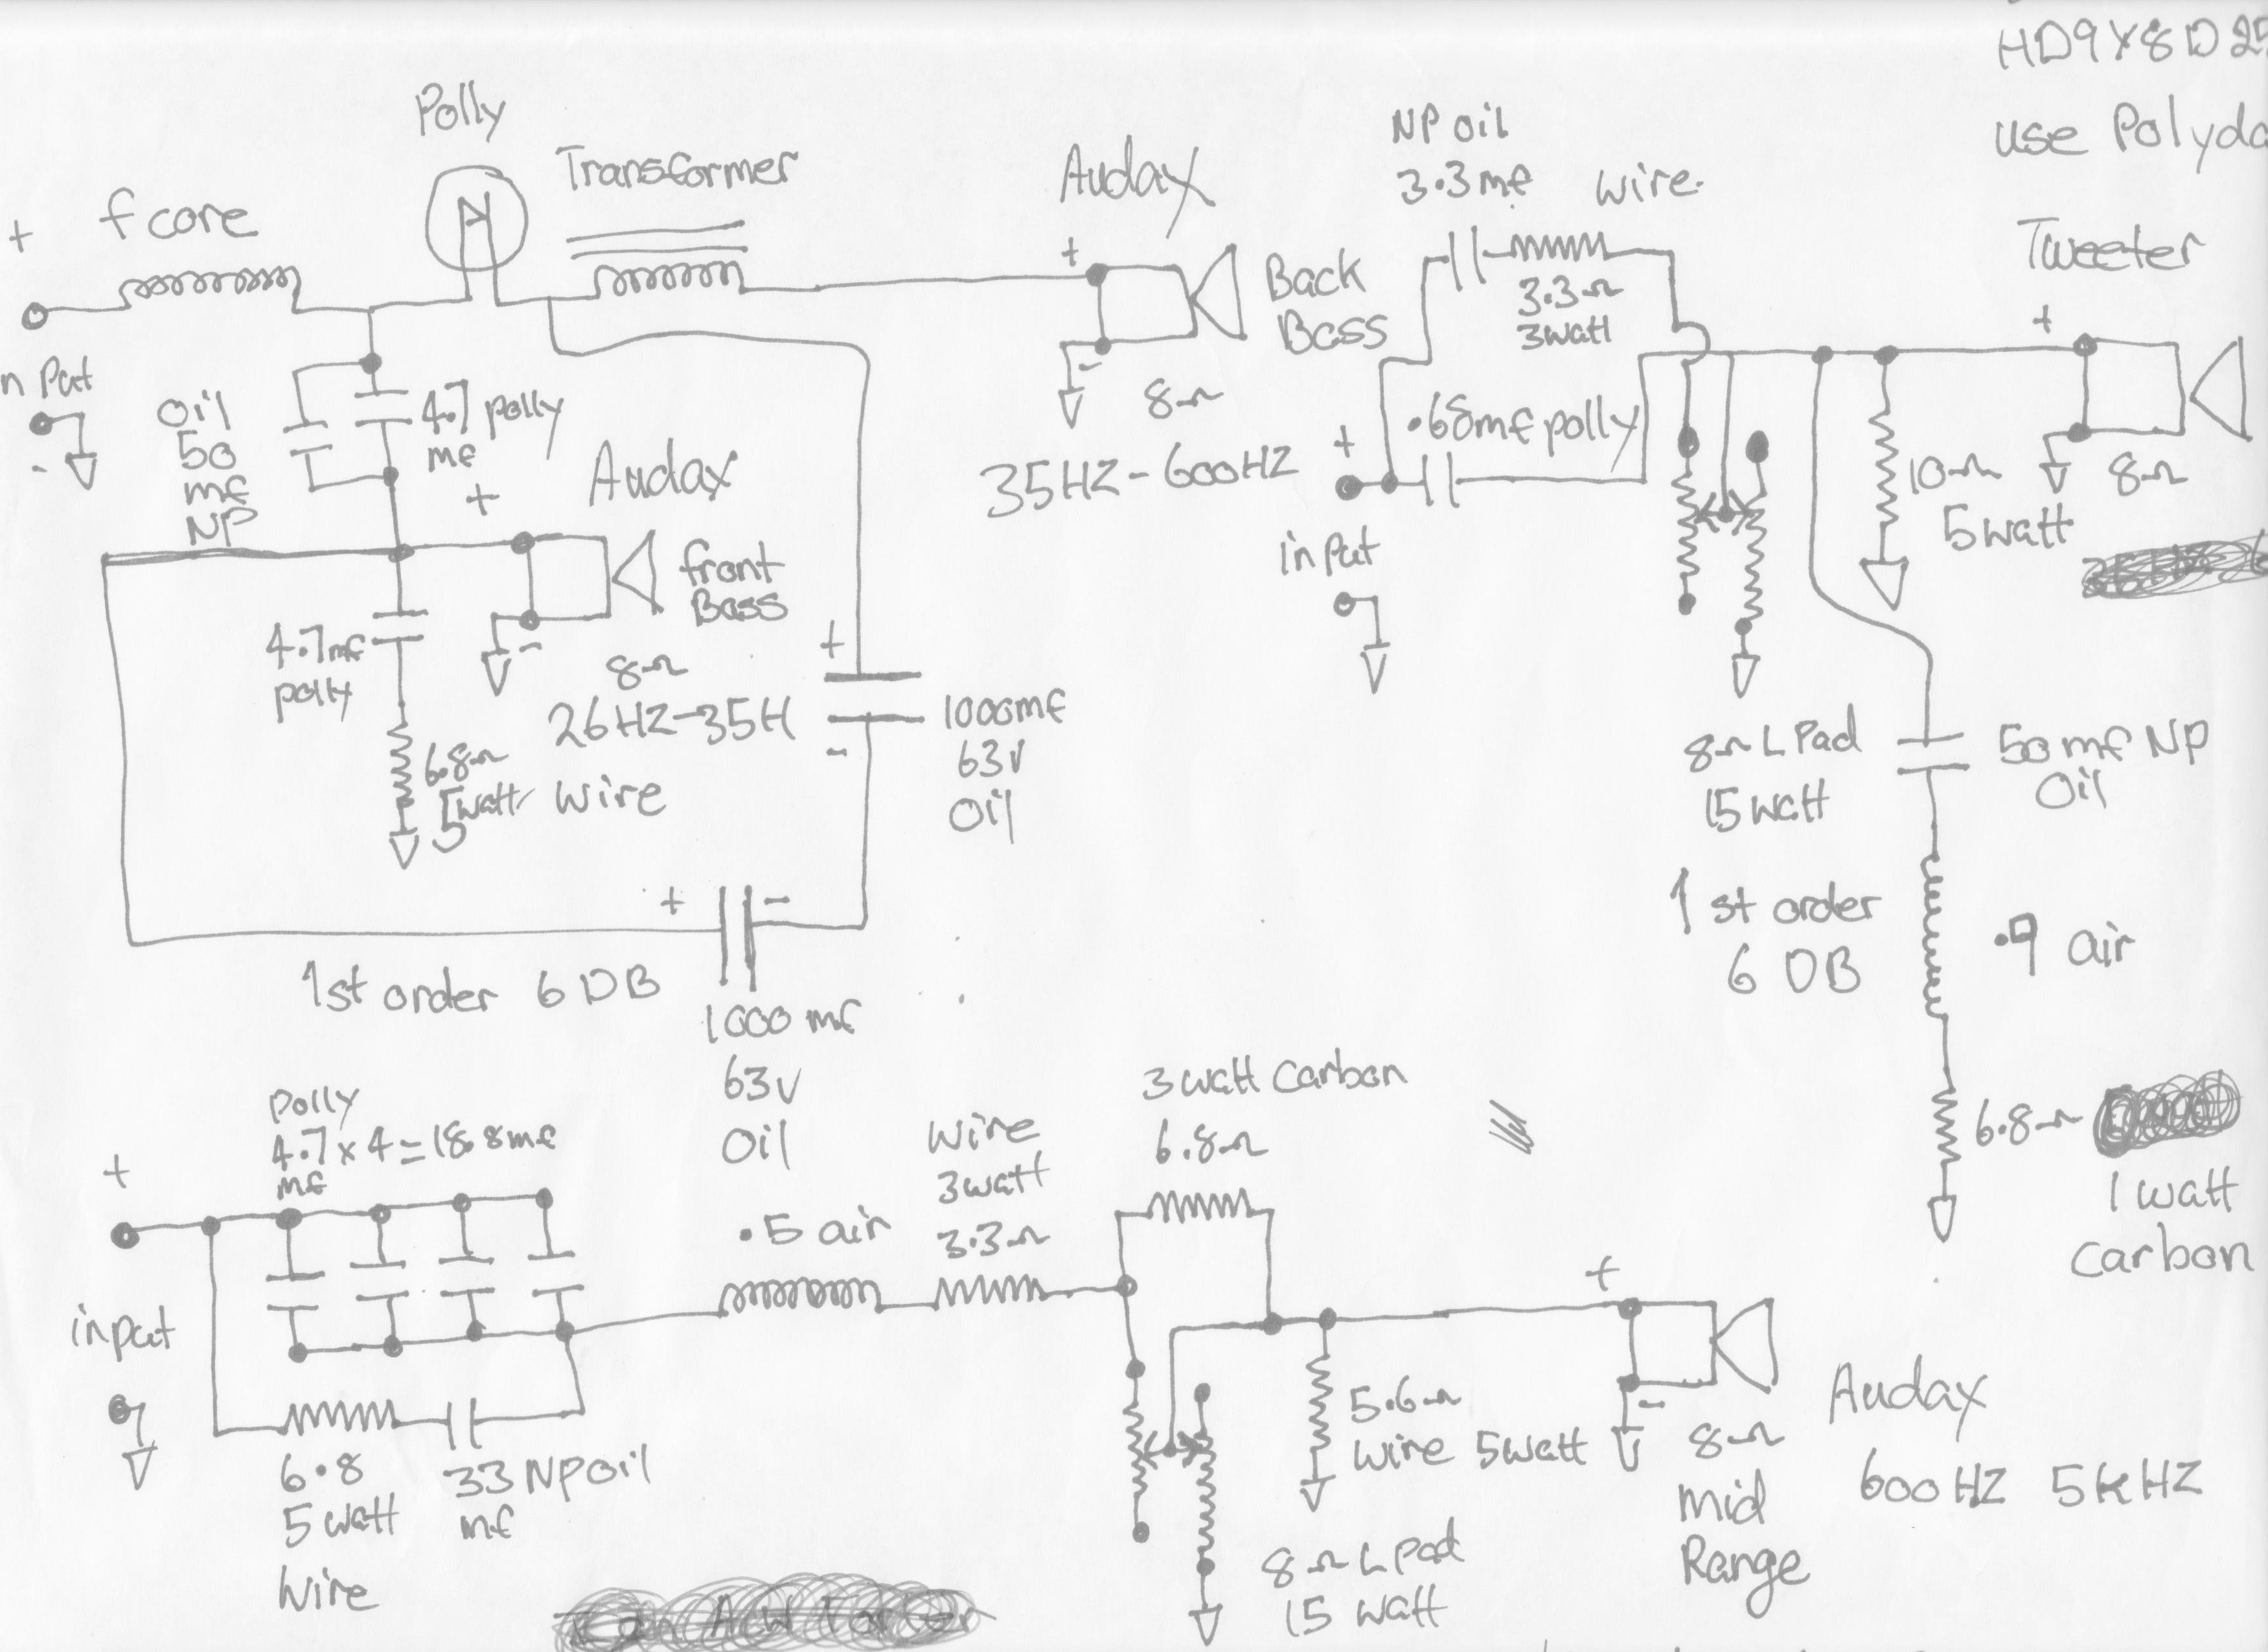 HD9X8D25
use Polyda
Polly
Transformer
f core
+
n Put
-
Oil
50
mf
NP
4.7 polly
mf
+
Audax
front
Bass
-
8Ω
26HZ-35H
4.7mf
polly
6.8Ω
5watt wire
+
-
1000mf
63v
Oil
+
-
1st order 6 DB
1000 mf
63v
Oil
Audax
+
Back
Bass
-
8Ω
35HZ-600HZ
NP oil
3.3mf
wire
3.3Ω
3watt
.68mf polly
+
input
Tweeter
+
-
8Ω
10Ω
5watt
8Ω L Pad
15 watt
1st order
6 DB
50 mf NP
Oil
.9 air
6.8Ω
1 watt
carbon
polly
4.7 x 4 = 18.8mf
mf
+
input
6.8
5 watt
wire
33 NP oil
mf
.5 air
wire
3watt
3.3Ω
3 watt carbon
6.8Ω
5.6Ω
wire 5watt
8Ω L Pad
15 watt
+
-
8Ω
mid
Range
Audax
600HZ 5KHZ